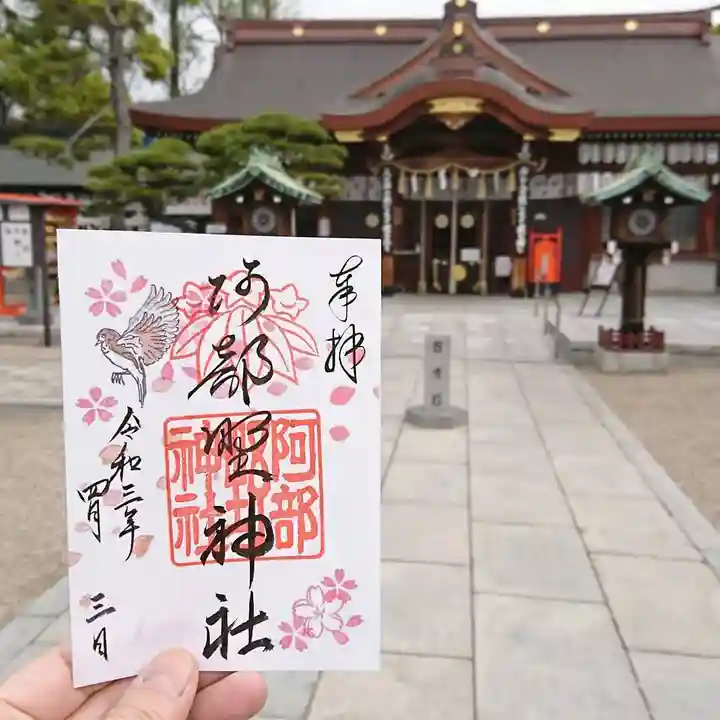 奉拝
阿部野神社
阿部野神社
令和三年
四月
三日